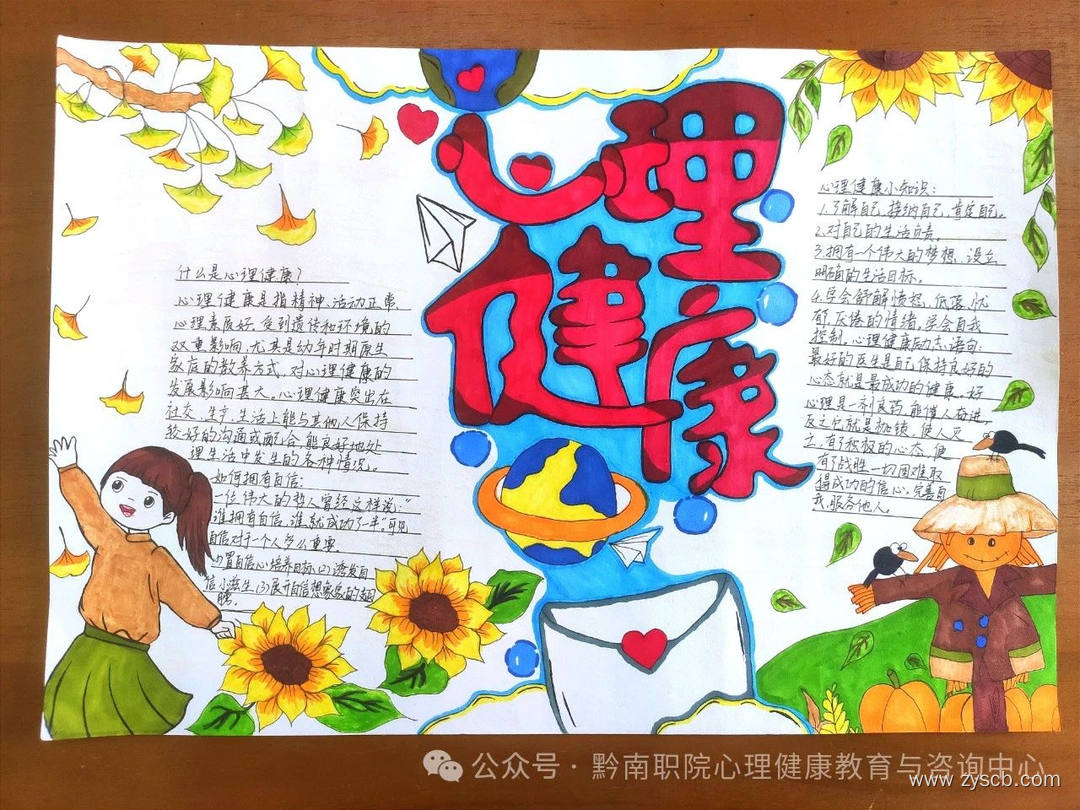 心理
健康
什么是心理健康?
心理健康是指精神、活动正常、
心理素质好、受到遗传和环境的
双重影响,尤其是幼年时期原生
家庭的教养方式,对心理健康的
发展影响甚大。心理健康突出在
社交、生产、生活上能与其他人保持
较好的沟通或配合,能良好地处
理生活中发生的各种情况。
如何拥有自信:
一位伟大的哲人曾经这样说:“
谁拥有自信,谁就成功了一半”可见
自信对于一个人多么重要。
自信心培养目标(2)
(3)展开自信想象
心理健康小知识:
1.了解自己,接纳自己,肯定自己。
2.对自己的生活负责。
3.拥有一个伟大的梦想、设立
明确的生活目标。
4.学会舒解愤怒、低落、忧
郁、厌倦的情绪,学会自我
控制。心理健康励志语句:
最好的医生是自己,保持良好的
心态就是最成功的健康。好
心理是一剂良药,能使人奋进,
反之它就是枷锁,使人灭
亡,有了积极的心态,便
有了战胜一切困难取
得成功的信心。完善自
我,服务他人。
公众号·黔南职院心理健康教育与咨询中心
www.zyscb.com